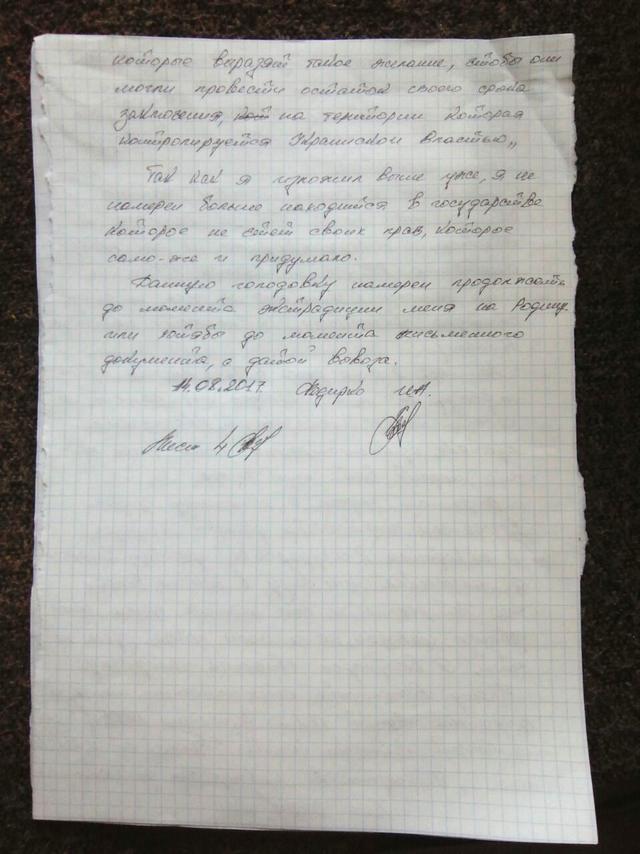 которые выразят такое желание, чтобы они
могли провести остаток своего срока
заключения, на територии которая
контролируется Украинской властью„
Так как я изложил выше уже, я не
намерен больше находится в государстве
которое не чтет своих прав, которое
само-же и придумало.
Данную голодовку намерен продолжать
до момента экстрадиции меня на Родину
или хотябы до момента письменного
документа, с датой вывоза.
14.08.2017 И.А.
Лист 4